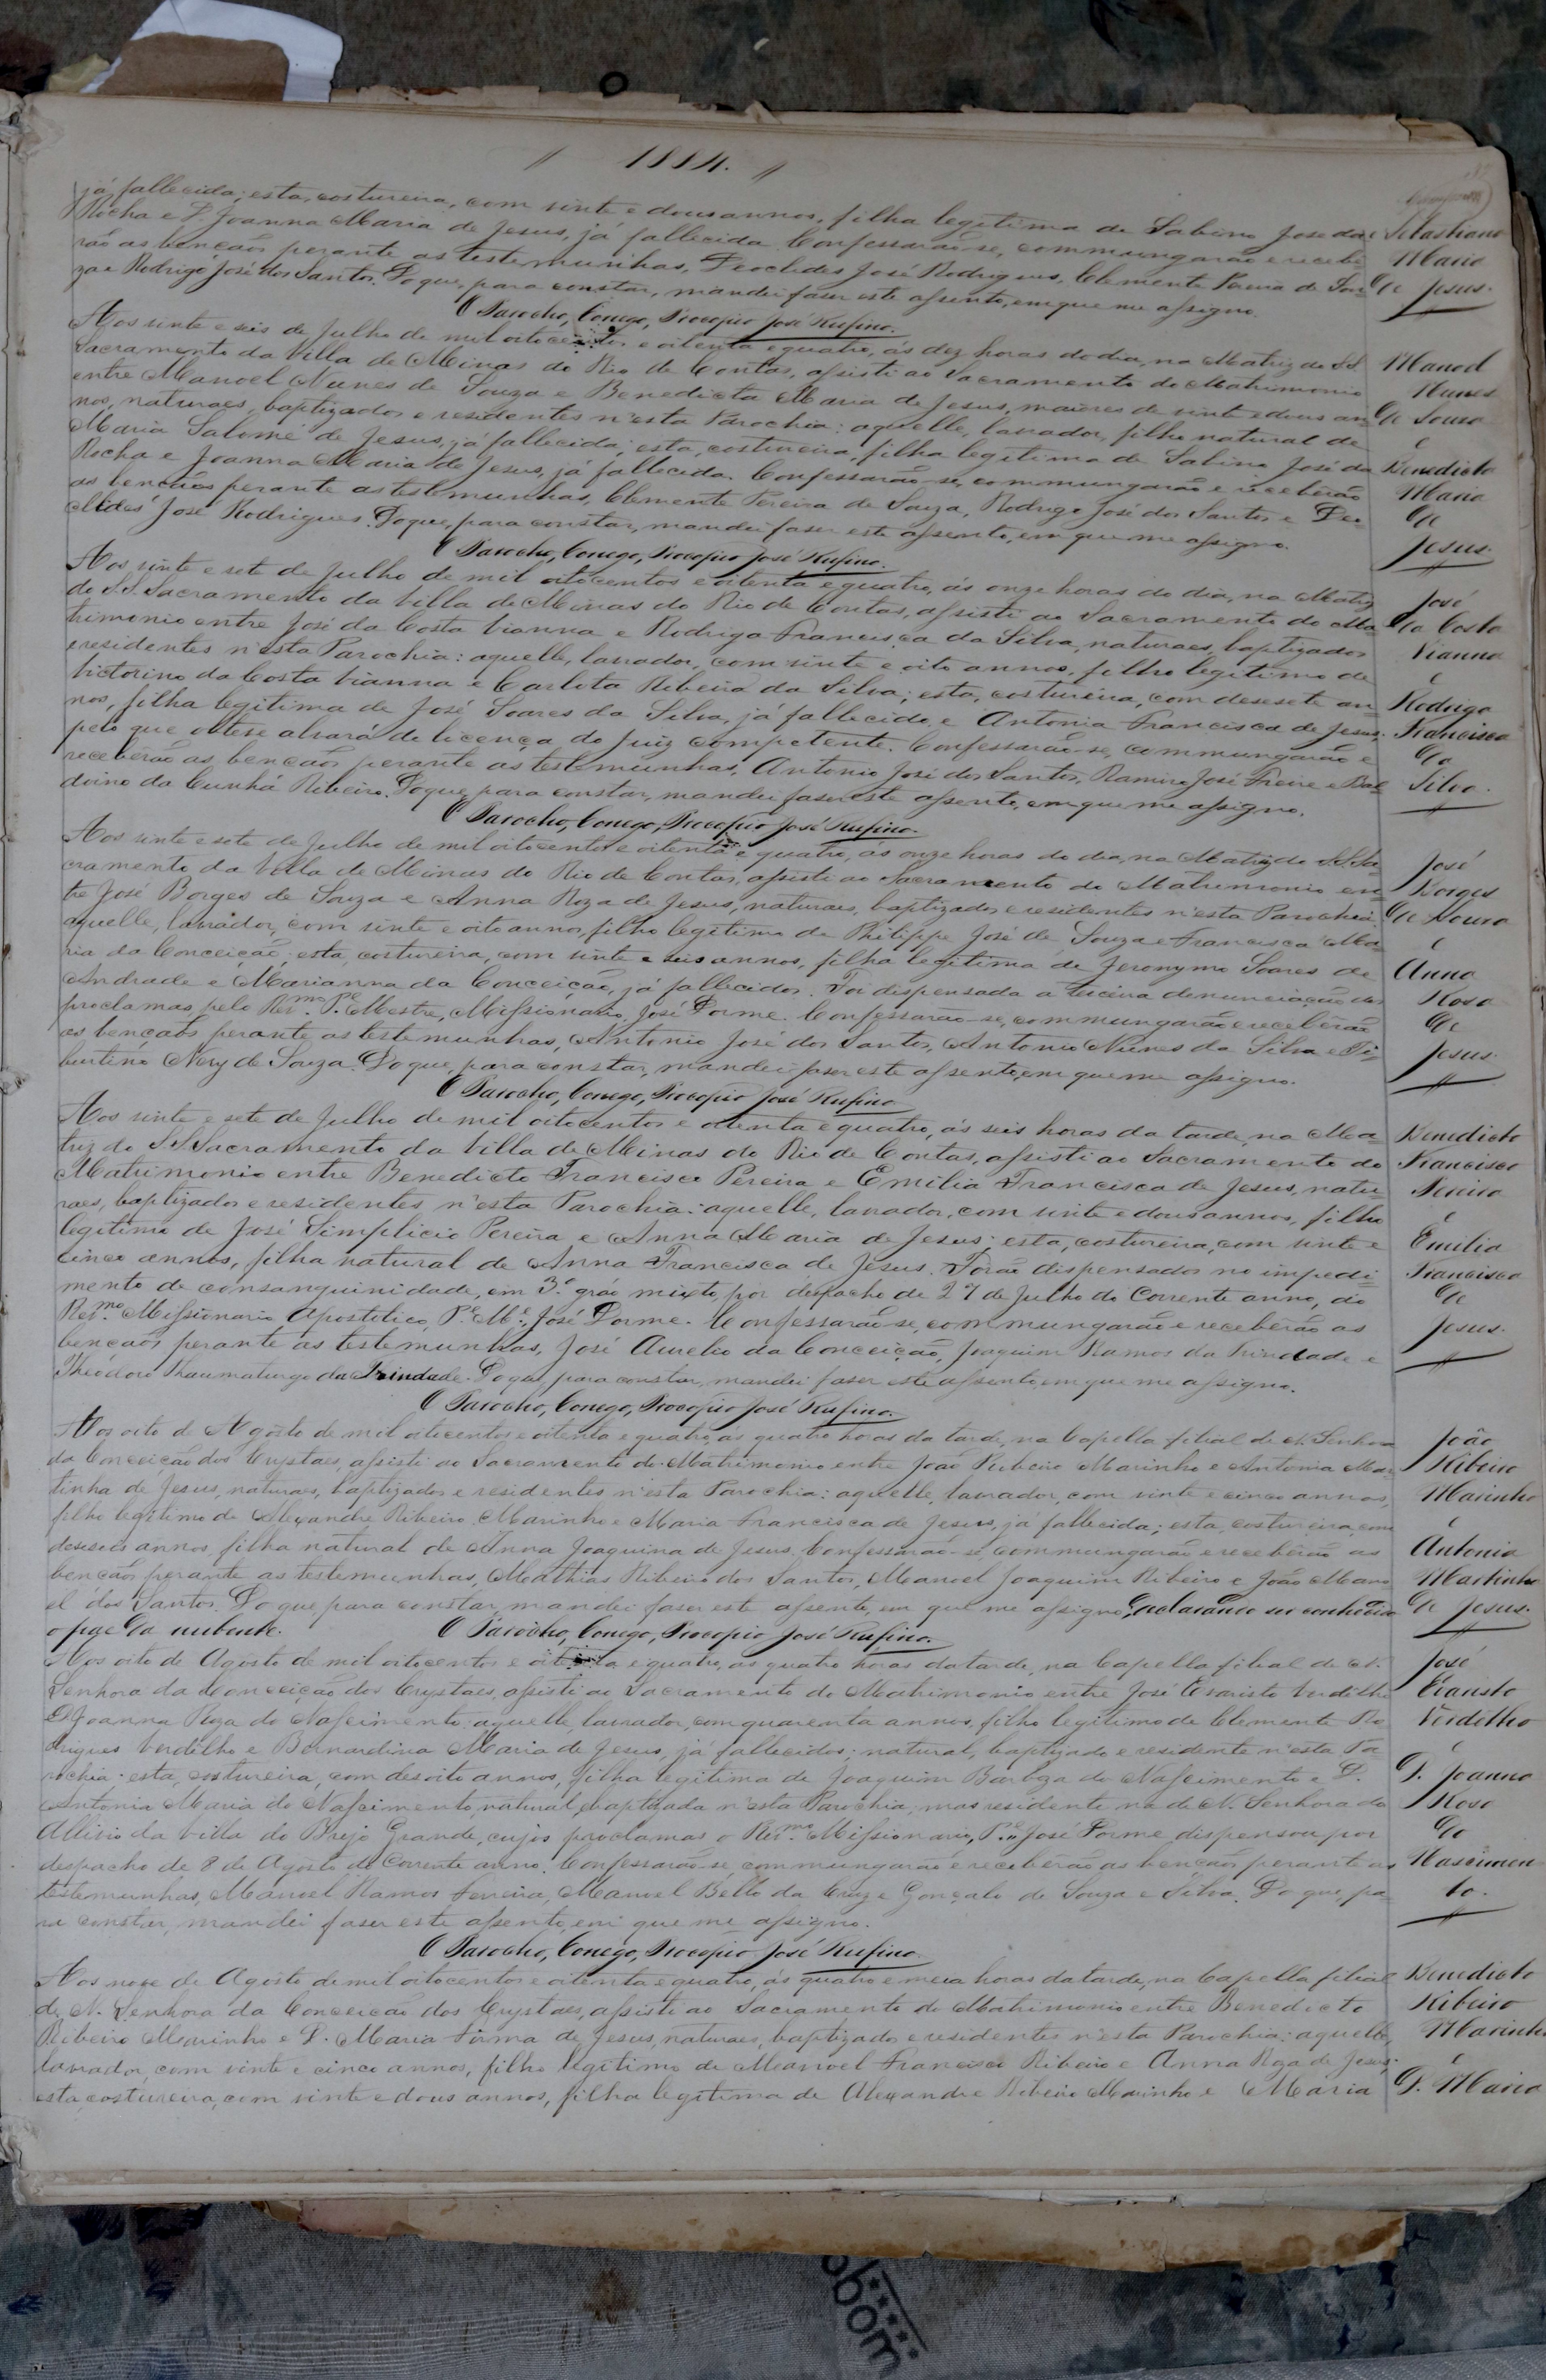 1884.
já fallecida; esta, costureira, com vinte e dous annos, filha legitima de Sabino José da
Rocha e D. Joanna Maria de Jesus, já fallecida. Confessarão-se, commungarão e recebe-
rão as bençãos perante as testemunhas, Deoclides José Rodrigues, Clemente Pereira de Sou-
za e Rodrigo José dos Santos. Do que, para constar, mandei faser este assento, em que me assigno.
O Parocho, Conego, Procopio José Rufino.
Sebastiana
Maria
de Jesus.
Aos vinte e seis de Julho de mil oitocentos e oitenta e quatro, ás dez horas do dia, na Matriz do SS.
Sacramento da Villa de Minas do Rio de Contas, assisti ao Sacramento do Matrimonio
entre Manoel Nunes de Souza e Benedicta Maria de Jesus, maiores de vinte e dous an-
nos, naturaes, baptizados e residentes n'esta Parochia: aquelle, lavrador, filho natural de
Maria Salomé de Jesus, já fallecida; esta, costureira, filha legitima de Sabino José da
Rocha e Joanna Maria de Jesus, já fallecida. Confessarão-se, commungarão e receberão
as bençãos perante as testemunhas, Clemente Pereira de Souza, Rodrigo José dos Santos e Deo-
clides José Rodrigues. Do que, para constar, mandei faser este assento, em que me assigno.
O Parocho, Conego, Procopio José Rufino.
Manoel
Nunes
de Souza
e
Benedicta
Maria
de
Jesus.
Aos vinte e sete de Julho de mil oitocentos e oitenta e quatro, ás onze horas do dia, na Matriz
do S.S. Sacramento da Villa de Minas do Rio de Contas, assisti ao Sacramento do Ma-
trimonio entre José da Costa Vianna e Rodriga Francisca da Silva, naturaes, baptizados
e residentes n'esta Parochia: aquelle, lavrador, com vinte e oito annos, filho legitimo de
Victorino da Costa Vianna e Carlota Ribeira da Silva; esta, costureira, com desesete an-
nos, filha legitima de José Soares da Silva, já fallecido, e Antonia Francisca de Jesus;
pelo que obteve alvará de licença do Juiz competente. Confessarão-se, commungarão e
receberão as bençãos perante as testemunhas, Antonio José dos Santos, Ramiro José Freire e Bal-
doino da Cunha Ribeiro. Do que, para constar, mandei faser este assento, em que me assigno.
O Parocho, Conego, Procopio José Rufino.
José
da Costa
Vianna
e
Rodriga
Francisca
da
Silva.
Aos vinte e sete de Julho de mil oitocentos e oitenta e quatro, ás onze horas do dia, na Matriz do S.S. Sa-
cramento da Villa de Minas do Rio de Contas, assisti ao Sacramento do Matrimonio en-
tre José Borges de Souza e Anna Roza de Jesus, naturaes, baptizados e residentes n'esta Parochia:
aquelle, lavrador, com vinte e oito annos, filho legitimo de Philippe José de Souza e Francisca Ma-
ria da Conceição; esta, costureira, com vinte e seis annos, filha legitima de Jeronymo Soares de
Andrade e Marianna da Conceição, já fallecidos. Foi dispensada a terceira denunciação dos
proclamas, pelo Rev.mo P.e Mestre, Missionario, José Dorme. Confessarão-se, commungarão e receberão
as bençãos perante as testemunhas, Antonio José dos Santos, Antonio Nunes da Silva e Ti-
burtino Nery de Souza. Do que, para constar, mandei faser este assento, em que me assigno.
O Parocho, Conego, Procopio José Rufino
José
Borges
de Souza
e
Anna
Rosa
de
Jesus.
Aos vinte e sete de Julho de mil oitocentos e oitenta e quatro, ás seis horas da tarde, na Ma-
triz do S.S. Sacramento da Villa de Minas do Rio de Contas, assisti ao Sacramento do
Matrimonio entre Benedicto Francisco Pereira e Emilia Francisca de Jesus, natu-
raes, baptizados e residentes n'esta Parochia: aquelle, lavrador, com vinte e dous annos, filho
legitimo de José Simplicio Pereira e Anna Maria de Jesus; esta, costureira, com vinte e
cinco annos, filha natural de Anna Francisca de Jesus. Forão dispensados no impedi-
mento de consanguinidade, em 3.º gráo mixto, por despacho de 27 de Julho do Corrente anno, do
Rev.mo Missionario Apostolico, P.e M.e José Dorme. Confessarão-se, commungarão e receberão as
bençãos perante as testemunhas, José Aurelio da Conceição, Joaquim Ramos da Trindade e
Theodoro Thaumaturgo da Trindade. Do que, para constar, mandei faser este assento, em que me assigno.
O Parocho, Conego, Procopio José Rufino.
Benedicto
Francisco
Pereira
e
Emilia
Francisca
de
Jesus.
Aos oito de Agosto de mil oitocentos e oitenta e quatro, ás quatro horas da tarde, na Capella filial de N. Senhora
da Conceição dos Crystaes, assisti ao Sacramento do Matrimonio entre João Ribeiro Marinho e Antonia Mar-
tinha de Jesus, naturaes, baptizados e residentes n'esta Parochia: aquelle, lavrador, com vinte e cinco annos,
filho legitimo de Alexandre Ribeiro Marinho e Maria Francisca de Jesus, já fallecida; esta, costureira, com
deseseis annos, filha natural de Anna Joaquina de Jesus. Confessarão-se, commungarão e receberão as
bençãos perante as testemunhas, Mathias Ribeiro dos Santos, Manoel Joaquim Ribeiro e João Mano-
el dos Santos. Do que, para constar, mandei faser este assento, em que me assigno, declarando ser conhecido
o pae da nubente. O Parocho, Conego, Procopio José Rufino.
João
Ribeiro
Marinho
e
Antonia
Martinha
de Jesus.
Aos oito de Agosto de mil oitocentos e oitenta e quatro, ás quatro horas da tarde, na Capella filial de N.
Senhora da Conceição dos Crystaes, assisti ao Sacramento do Matrimonio entre José Evaristo Verdilho
e D. Joanna Roza do Nascimento: aquelle, lavrador, com quarenta annos, filho legitimo de Clemente Ro-
drigues Verdilho e Bernardina Maria de Jesus, já fallecidos; natural, baptizado e residente n'esta Pa-
rochia; esta, costureira, com desoito annos, filha legitima de Joaquim Barboza do Nascimento e D.
Antonia Maria do Nascimento, natural, baptizada n'esta Parochia, mas residente na de N. Senhora do
Allivio da Villa do Brejo Grande, cujos proclamas o Rev.mo Missionario, P.e José Dorme dispensou por
despacho de 8 de Agosto do Corrente anno. Confessarão-se, commungarão e receberão as bençãos perante as
testemunhas, Manoel Ramos Ferreira, Manoel Bello da Cruz e Gonçalo de Souza e Silva. Do que, pa-
ra constar, mandei faser este assento, em que me assigno.
O Parocho, Conego, Procopio José Rufino.
José
Evaristo
Verdilho
e
D. Joanna
Rosa
do
Nascimen-
to.
Aos nove de Agosto de mil oitocentos e oitenta e quatro, ás quatro e meia horas da tarde, na Capella filial
de N. Senhora da Conceição dos Crystaes, assisti ao Sacramento do Matrimonio entre Benedicto
Ribeiro Marinho e D. Maria Firma de Jesus, naturaes, baptizados e residentes n'esta Parochia: aquelle,
lavrador, com vinte e cinco annos, filho legitimo de Manoel Francisco Ribeiro e Anna Roza de Jesus;
esta, costureira, com vinte e dous annos, filha legitima de Alexandre Ribeiro Marinho e Maria
Benedicto
Ribeiro
Marinho
e
D. Maria